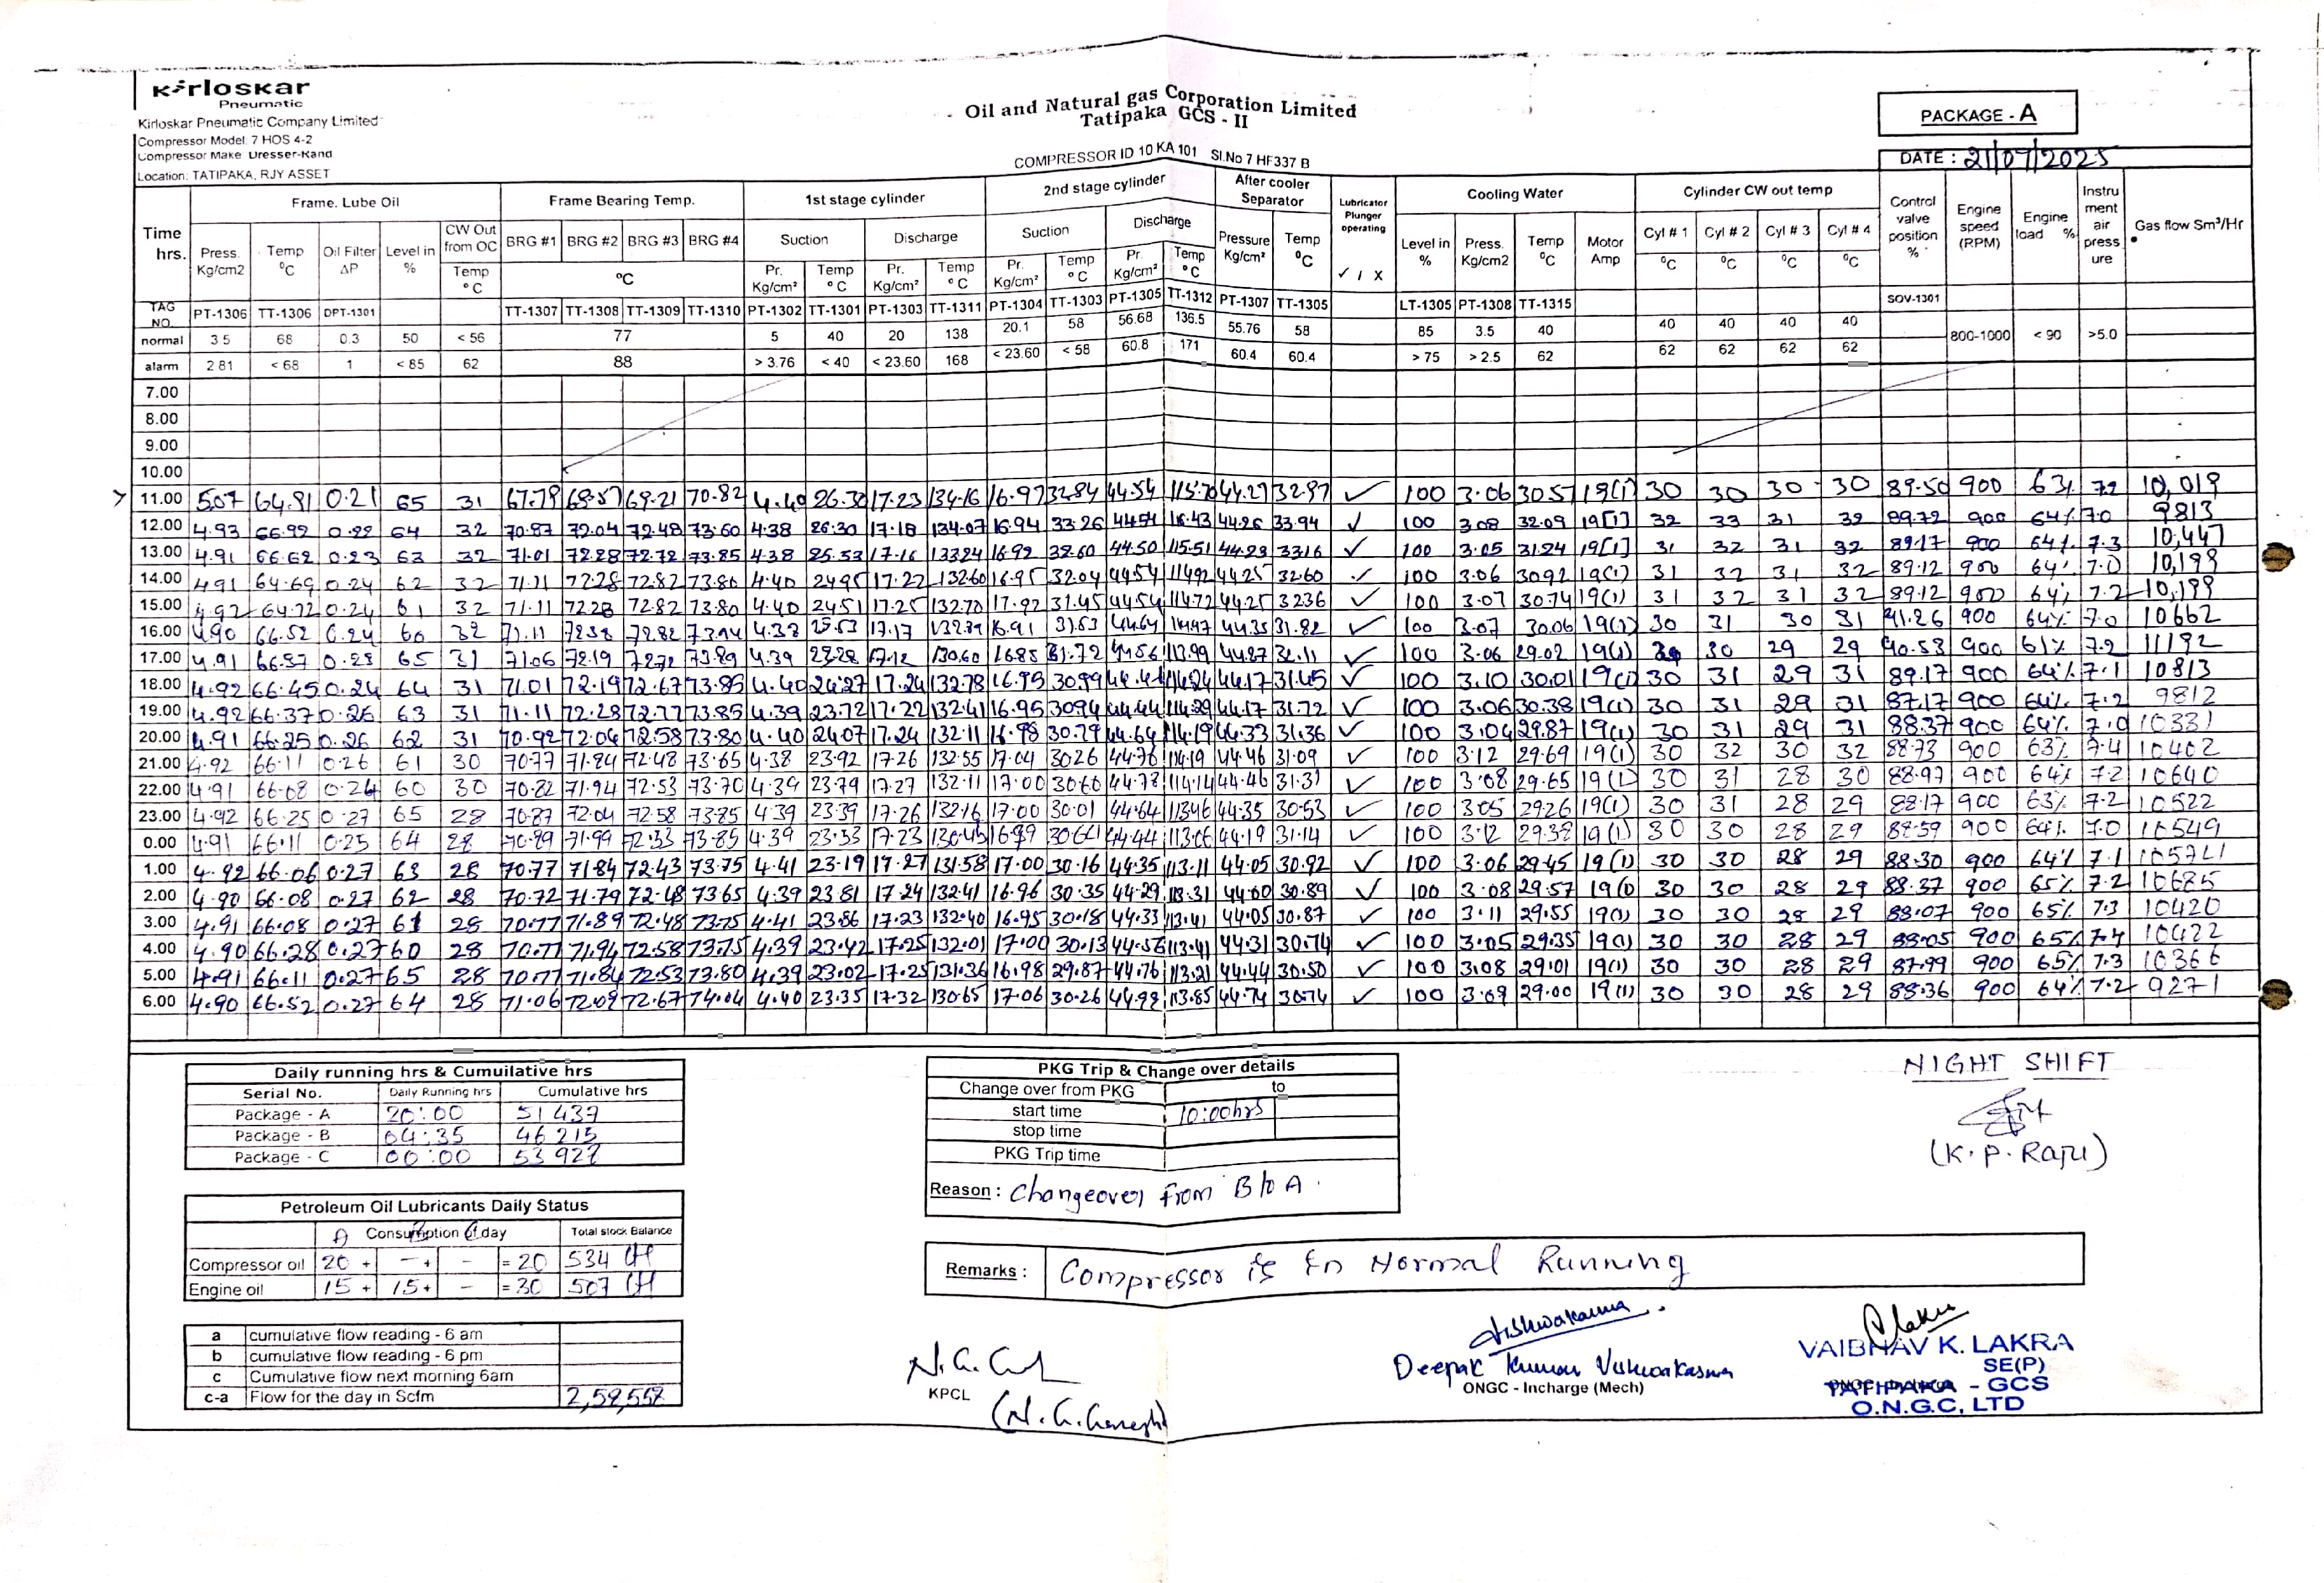 Kirloskar
Pneumatic
Kirloskar Pneumatic Company Limited
Compressor Model: 7 HOS 4-2
Compressor Make: Dresser-Rand
Location: TATIPAKA, RJY ASSET
Oil and Natural gas Corporation Limited
Tatipaka GCS - II
COMPRESSOR ID 10 KA 101 Sl.No 7 HF337 B
PACKAGE - A
DATE : 21/07/2025
Time hrs. Frame. Lube Oil Frame Bearing Temp. 1st stage cylinder 2nd stage cylinder After cooler Separator Lubricator Plunger operating Cooling Water Cylinder CW out temp Control valve position % Engine speed (RPM) Engine load % Instru ment air press ure Gas flow Sm³/Hr
Press. Kg/cm2 Temp °C Oil Filter ΔP Level in % CW Out from OC Temp °C BRG #1 BRG #2 BRG #3 BRG #4 °C Suction Discharge Suction Discharge Pressure Kg/cm² Temp °C ✓ / X Level in % Press. Kg/cm2 Temp °C Motor Amp Cyl # 1 Cyl # 2 Cyl # 3 Cyl # 4
Pr. Kg/cm² Temp °C Pr. Kg/cm² Temp °C Pr. Kg/cm² Temp °C Pr. Kg/cm² Temp °C °C °C °C °C
TAG NO. PT-1306 TT-1306 DPT-1301 TT-1307 TT-1308 TT-1309 TT-1310 PT-1302 TT-1301 PT-1303 TT-1311 PT-1304 TT-1303 PT-1305 TT-1312 PT-1307 TT-1305 LT-1305 PT-1308 TT-1315 SOV-1301
normal 3.5 68 0.3 50 < 56 77 5 40 20 138 20.1 58 56.68 136.5 55.76 58 85 3.5 40 40 40 40 40 800-1000 < 90 >5.0
alarm 2.81 < 68 1 < 85 62 88 > 3.76 < 40 < 23.60 168 < 23.60 < 58 60.8 171 60.4 60.4 > 75 > 2.5 62 62 62 62 62
7.00
8.00
9.00
10.00
11.00 5.07 64.81 0.21 65 31 67.79 68.57 69.21 70.82 4.40 26.30 17.23 134.16 16.97 32.84 44.54 115.70 44.27 32.97 ✓ 100 3.06 30.57 19(1) 30 30 30 30 89.50 900 63% 7.2 10,019
12.00 4.93 66.92 0.22 64 32 70.87 72.04 72.48 73.60 4.38 26.30 17.18 134.07 16.94 33.26 44.54 116.43 44.26 33.94 ✓ 100 3.08 32.09 19[1] 32 33 31 32 89.72 900 64% 7.0 9813
13.00 4.91 66.62 0.23 63 32 71.01 72.28 72.72 73.85 4.38 25.53 17.16 133.24 16.92 32.60 44.50 115.51 44.23 33.16 ✓ 100 3.05 31.24 19[1] 31 32 31 32 89.17 900 64% 7.3 10,447
14.00 4.91 64.69 0.24 62 32 71.11 72.28 72.82 73.80 4.40 24.95 17.22 132.60 16.95 32.04 44.54 114.92 44.25 32.60 ✓ 100 3.06 30.92 19(1) 31 32 31 32 89.12 900 64% 7.0 10,199
15.00 4.92 64.72 0.24 61 32 71.11 72.28 72.82 73.80 4.40 24.51 17.25 132.70 17.92 31.45 44.54 114.72 44.25 32.36 ✓ 100 3.07 30.74 19(1) 31 32 31 32 89.12 900 64% 7.2 10,199
16.00 4.90 66.52 0.24 60 32 71.11 72.38 72.82 4.38 17.17 16.91 31.63 44.64 44.35 31.82 ✓ 100 3.07 30.06 30 31 30 31 91.26 900 64% 7.0 10662
17.00 4.91 66.37 0.23 65 31 71.06 72.19 72.72 73.89 4.39 23.28 17.12 130.60 16.85 31.72 113.99 32.11 ✓ 100 3.06 29.02 30 29 29 90.53 900 61% 7.2 11192
18.00 4.92 66.45 0.24 64 31 71.01 72.19 72.67 73.85 4.40 24.27 17.24 132.78 16.95 30.99 44.17 31.45 ✓ 100 3.10 30.01 19(1) 30 31 29 31 89.17 900 64% 7.1 10813
19.00 4.92 66.37 0.26 63 31 71.11 72.28 72.77 73.85 4.39 23.72 17.22 132.41 16.95 30.94 44.44 114.29 44.17 31.72 ✓ 100 3.06 30.38 19(1) 30 31 29 31 87.17 900 64% 7.2 9812
20.00 4.91 66.25 0.26 62 31 70.92 72.04 72.58 73.80 4.40 24.07 17.24 132.11 16.98 30.79 44.64 114.19 44.33 31.36 ✓ 100 3.04 29.87 19(1) 30 31 29 31 88.37 900 64% 7.0 10331
21.00 4.92 66.11 0.26 61 30 70.77 71.84 72.48 73.65 4.38 23.92 17.26 132.55 17.04 30.26 44.76 114.19 44.46 31.09 ✓ 100 3.12 29.69 19(1) 30 32 30 32 88.73 900 63% 7.4 10402
22.00 4.91 66.08 0.24 60 30 70.82 71.94 72.53 73.70 4.39 23.79 17.27 132.11 17.00 30.60 44.78 114.14 44.46 31.31 ✓ 100 3.08 29.65 19(1) 30 31 28 30 88.97 900 64% 7.2 10640
23.00 4.92 66.25 0.27 65 28 70.87 72.04 72.58 73.85 4.39 23.39 17.26 132.16 17.00 30.01 44.64 113.46 44.35 30.53 ✓ 100 3.05 29.26 19(1) 30 31 28 29 88.17 900 63% 7.2 10522
0.00 4.91 66.11 0.25 64 28 70.89 71.99 72.33 73.85 4.39 23.53 17.23 130.43 16.99 30.61 44.44 113.06 44.19 31.14 ✓ 100 3.12 29.38 19(1) 30 30 28 29 88.59 900 64% 7.0 10549
1.00 4.92 66.06 0.27 63 28 70.77 71.84 72.43 73.75 4.41 23.19 17.27 131.58 17.00 30.16 44.35 113.11 44.05 30.92 ✓ 100 3.06 29.45 19(1) 30 30 28 29 88.30 900 64% 7.1
2.00 4.90 66.08 0.27 62 28 70.72 71.79 72.48 73.65 4.39 23.81 17.24 132.41 16.96 30.35 44.29 113.31 44.00 30.89 ✓ 100 3.08 29.57 19(1) 30 30 28 29 88.37 900 65% 7.2 10685
3.00 4.91 66.08 0.27 61 28 70.77 71.89 72.48 73.75 4.41 23.86 17.23 132.40 16.95 30.18 44.33 113.41 44.05 30.87 ✓ 100 3.11 29.55 19(1) 30 30 28 29 88.07 900 65% 7.3 10420
4.00 4.90 66.28 0.27 60 28 70.77 71.94 72.58 73.75 4.39 23.42 17.25 132.01 17.00 30.13 44.56 113.41 44.31 30.74 ✓ 100 3.05 29.35 19(1) 30 30 28 29 88.05 900 65% 7.4 10422
5.00 4.91 66.11 0.27 65 28 70.77 71.84 72.53 73.80 4.39 23.02 17.25 131.36 16.98 29.87 44.76 113.21 44.44 30.50 ✓ 100 3.08 29.01 19(1) 30 30 28 29 87.99 900 65% 7.3 10366
6.00 4.90 66.52 0.27 64 28 71.06 72.09 72.67 74.04 4.40 23.35 17.32 130.65 17.06 30.26 44.98 113.85 44.74 30.74 ✓ 100 3.09 29.00 19(1) 30 30 28 29 88.36 900 64% 7.2 9271
Daily running hrs & Cumuilative hrs
Serial No. Daily Running hrs Cumulative hrs
Package - A 20:00 51437
Package - B 04:35 46215
Package - C 00:00 53927
PKG Trip & Change over details
Change over from PKG to
start time 10:00hrs
stop time
PKG Trip time
Reason : Changeover from B to A.
NIGHT SHIFT
(K.P. Raju)
Petroleum Oil Lubricants Daily Status
A Consumption of day Total stock Balance
Compressor oil 20 + - + - = 20 534 LH
Engine oil 15 + 15 + - = 30 507 LH
Remarks : Compressor is In Normal Running
a cumulative flow reading - 6 am
b cumulative flow reading - 6 pm
c Cumulative flow next morning 6am
c-a Flow for the day in Scfm 2,59,558
KPCL
(N.G. Ganesh)
Vishwakarma
Deepak Kumar Vishwakarma
ONGC - Incharge (Mech)
VAIBHAV K. LAKRA
SE(P)
TATIPAKA - GCS
O.N.G.C, LTD